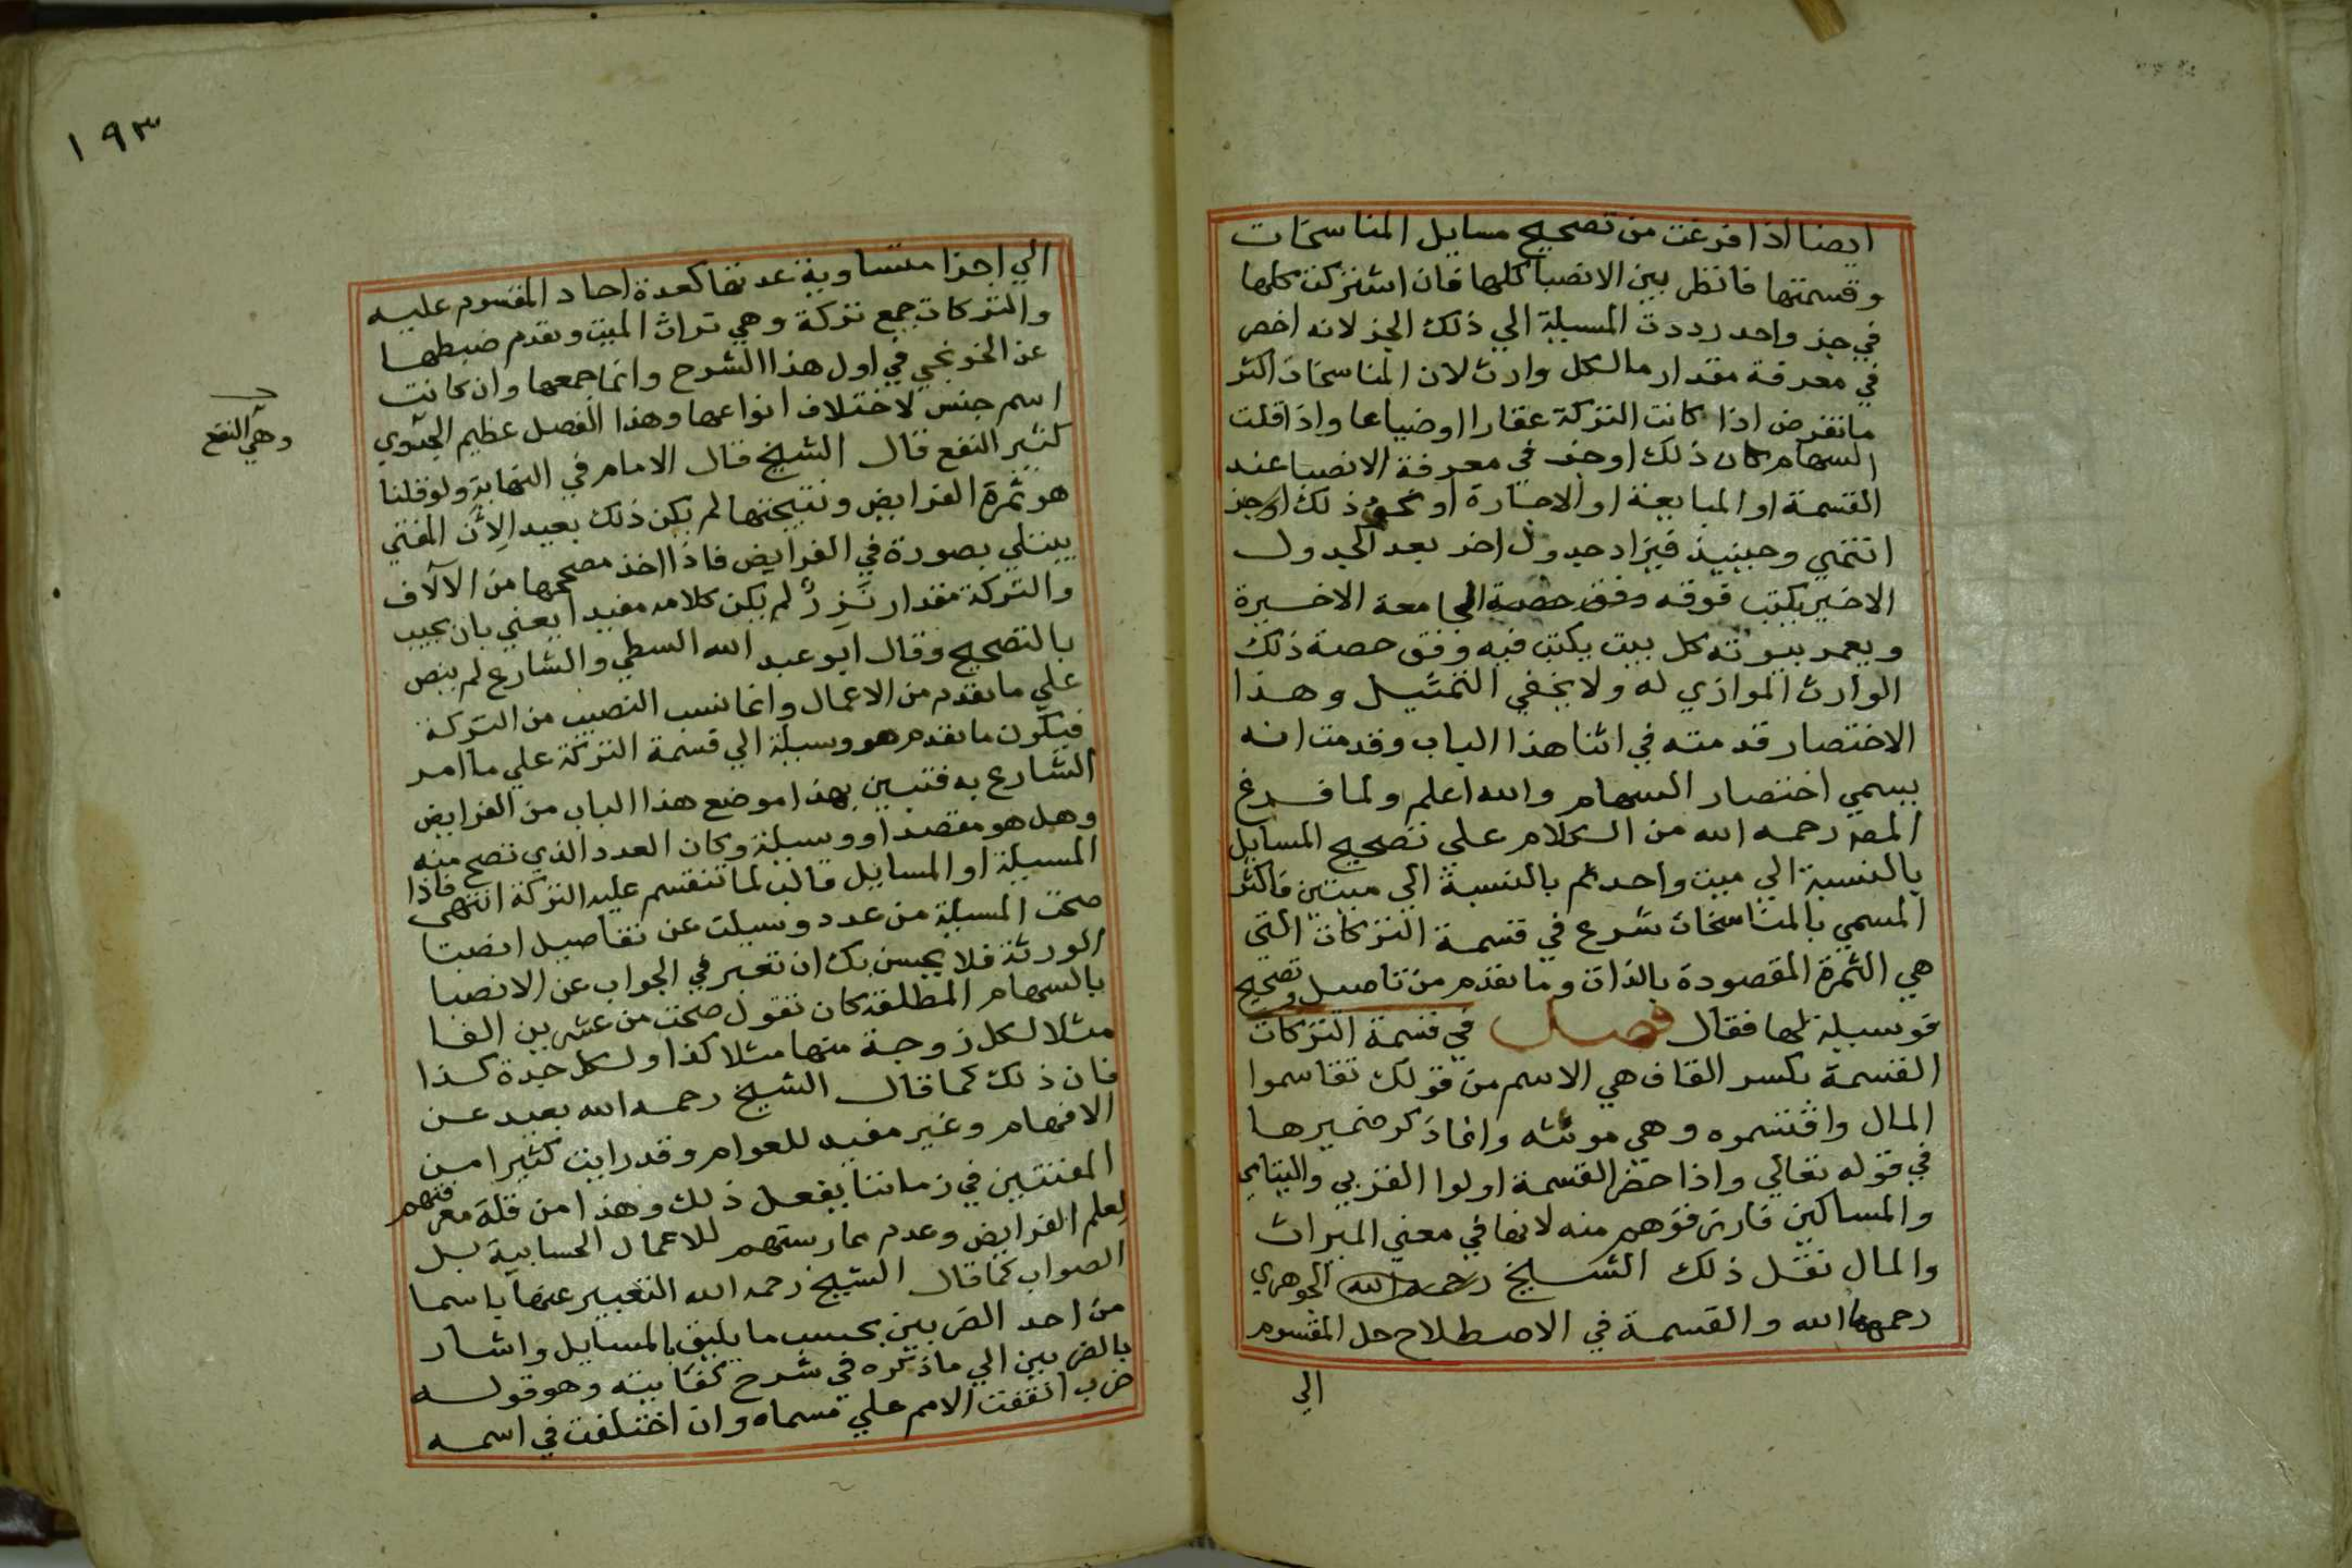 ايضا اذا فرغت من تصحيح مسايل المناسخات
وقسمتها فانظر بين الانصبا كلها فان اشتركت كلها
في جز واحد رددت المسيلة الي ذلك الجز لانه اخصر
في معرفة مقدار مالكل وارث لان المناسخات اكثر
ماتفرض اذا كانت التركة عقارا اوضياعا واذا قلت
السهام كان ذلك اوجز في معرفة الانصبا عند
القسمة او المبايعة او الاجارة او نحو ذلك اوجز
انتهي وحينيذ فيزاد جدول اخر بعد الجدول
الاخير يكتب فوقه وفق حصة الجامعة الاخيرة
ويعمر بيوته كل بيت يكتب فيه وفق حصة ذلك
الوارث الموازي له ولا يخفي التمثيل وهذا
الاختصار قدمته في اثنا هذا الباب وقدمت انه
يسمي اختصار السهام والله اعلم ولما فرغ
المصـ رحمه الله من الكلام علي تصحيح المسايل
بالنسبة الي ميت واحد ثم بالنسبة الي ميتين فاكثر
المسمي بالمناسخات شرع في قسمة التركات التي
هي الثمرة المقصودة بالذات وما تقدم من تاصيل وتصحيح
فوسيلة لها فقال فصل في قسمة التركات
القسمة بكسر القاف هي الاسم من قولك تقاسموا
المال واقتسموه وهي مونثه وانما ذكر ضميرها
في قوله تعالي واذا حضر القسمة اولوا القربي واليتامي
والمساكين فارزقوهم منه لانها في معني الميراث
والمال نقل ذلك الشيخ رحمه الله الجوهري
رحمهما الله والقسمة في الاصطلاح حل المقسوم
الي
١٩٣
الي اجزا متساوية عدتها كعدة احاد المقسوم عليه
والتركات جمع تركة وهي تراث الميت وتقدم ضبطها
عن الخونجي في اول هذا الشرح وانما جمعها وان كانت
اسم جنس لاختلاف انواعها وهذا الفصل عظيم الجدوي
وهي النفع
كثير النفع قال الشيخ قال الامام في النهاية ولوقلنا
هو ثمرة الفرايض ونتيجتها لم يكن ذلك بعيدا لأن المفتي
يبتلي بصورة في الفرايض فاذا اخذ مصححها من الآلاف
والتركة مقدار نَزِرٌ لم يكن كلامه مفيدا يعني بان يجيب
بالتصحيح وقال ابو عبد الله السطي والشارع لم ينص
علي ما تقدم من الاعمال وانما نسب النصيب من التركة
فيكون ما تقدم هو وسيلة الي قسمة التركة علي ما امر
الشارع به فتبين بهذا موضع هذا الباب من الفرايض
وهل هو مقصد او وسيلة وكان العدد الذي تصح منه
المسيلة او المسايل قالب لما تنقسم عليه التركة انتهى فاذا
صحت المسيلة من عدد وسيلت عن تفاصيل انصبا
الورثة فلا يحسن بك ان تعبر في الجواب عن الانصبا
بالسهام المطلقة كان تقول صحت من عشرين الفا
مثلا لكل زوجة منها مثلا كذا ولكل جدة كذا
فان ذلك كما قال الشيخ رحمه الله بعيد عن
الافهام وغير مفيد للعوام وقد رايت كثيرا من
المفتيين في زماننا يفعل ذلك وهذا من قلة معرفتهم
لعلم الفرايض وعدم ممارستهم للاعمال الحسابية بل
الصواب كما قال الشيخ رحمه الله التعبير عنها باسما
من احد الضربين بحسب ما يليق بالمسايل واشار
بالضربين الي ماذكره في شرح كفايته وهو قوله
ضرب اتفقت الامم علي مسماه وان اختلفت في اسمه